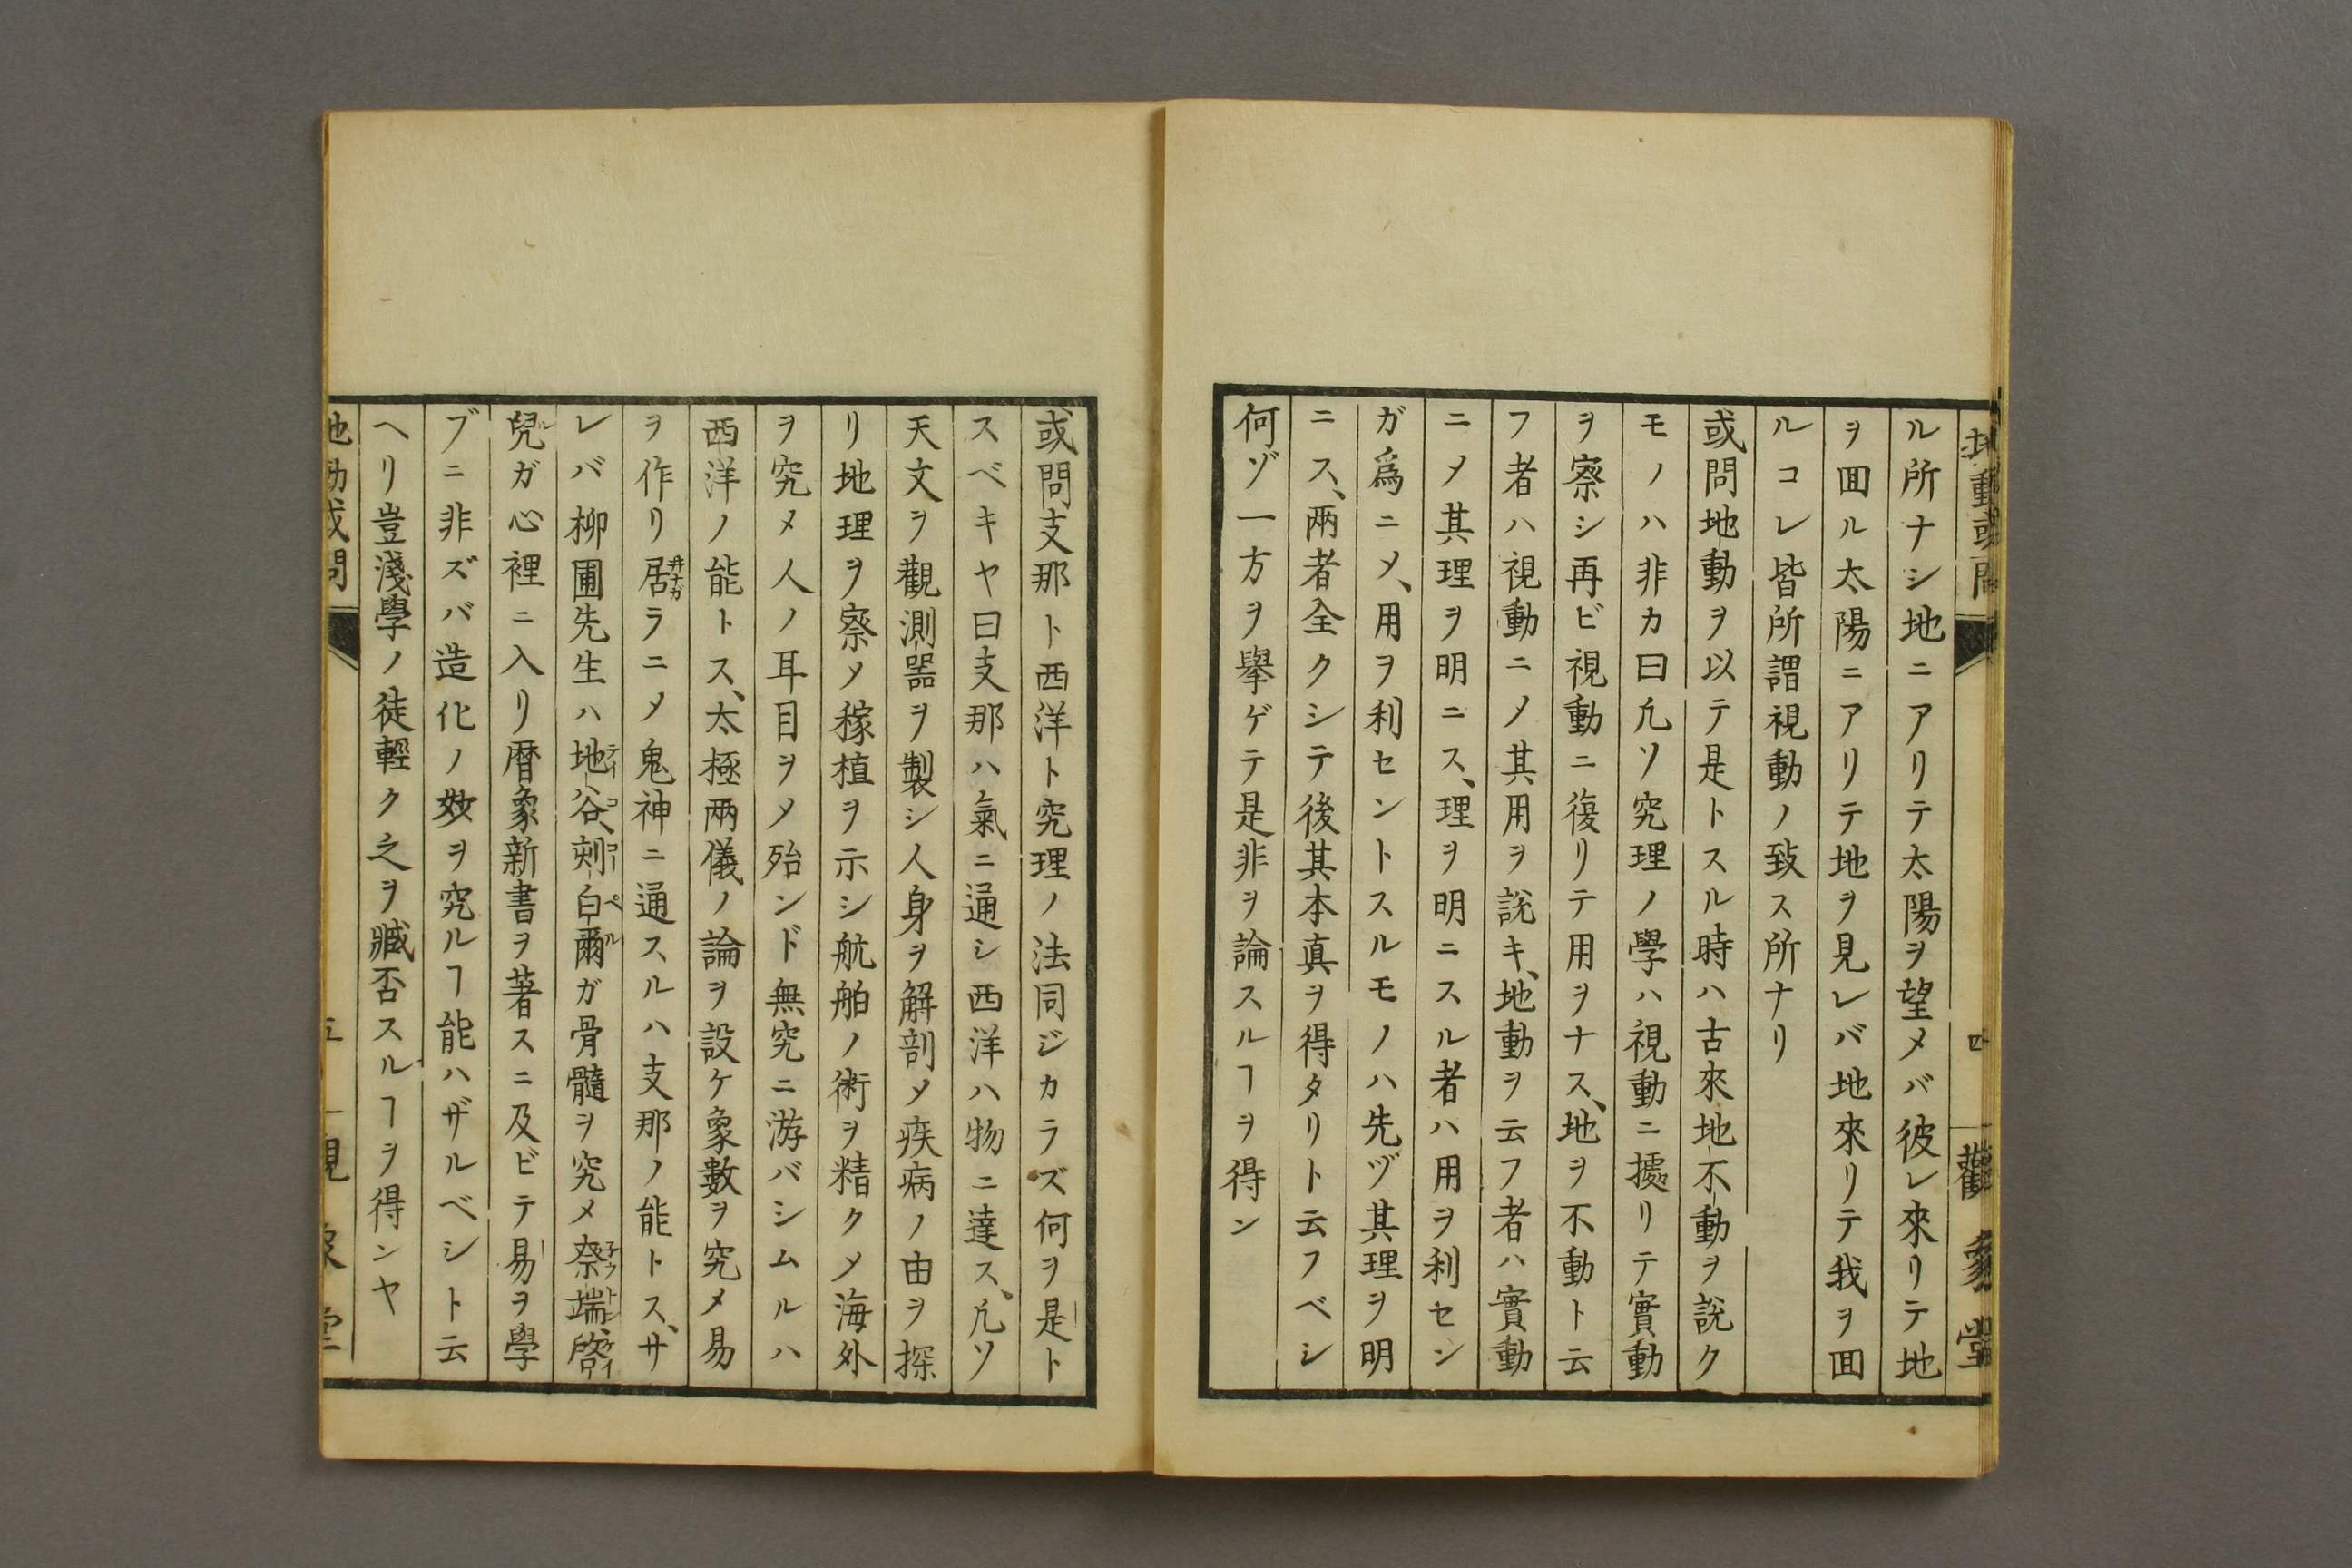 地動或問 四 觀象堂
ル所ナシ地ニアリテ太陽ヲ望メバ彼レ來リテ地
ヲ囬ル太陽ニアリテ地ヲ見レバ地來リテ我ヲ囬
ルコレ皆所謂視動ノ致ス所ナリ
或問地動ヲ以テ是トスル時ハ古來地不動ヲ説ク
モノハ非カ曰凢ソ究理ノ學ハ視動ニ據リテ實動
ヲ察シ再ビ視動ニ復リテ用ヲナス、地ヲ不動ト云
フ者ハ視動ニ〆其用ヲ説キ、地動ヲ云フ者ハ實動
ニ〆其理ヲ明ニス、理ヲ明ニスル者ハ用ヲ利セン
ガ爲ニ〆、用ヲ利セントスルモノハ先ヅ其理ヲ明
ニス、兩者全クシテ後其本真ヲ得タリト云フベシ
何ゾ一方ヲ擧ゲテ是非ヲ論スルヿヲ得ン
或問支那ト西洋ト究理ノ法同ジカラズ何ヲ是ト
スベキヤ曰支那ハ氣ニ通シ西洋ハ物ニ達ス、凢ソ
天文ヲ觀測噐ヲ製シ人身ヲ解剖〆疾病ノ由ヲ探
リ地理ヲ察〆稼植ヲ示シ航舶ノ術ヲ精ク〆海外
ヲ究メ人ノ耳目ヲ〆殆ンド無究ニ游バシムルハ
西洋ノ能トス、太極兩儀ノ論ヲ設ケ象數ヲ究メ易
ヲ作リ居ヰナガラニ〆鬼神ニ通スルハ支那ノ能トス、サ
レバ柳圃先生ハ地テイ谷コ、刻コー白ペ爾ルガ骨髓ヲ究メ奈子ウ端トン、啓ケイ
兒ルガ心裡ニ入リ暦象新書ヲ著スニ及ビテ易ヲ學
ブニ非ズバ造化ノ妙ヲ究ルヿ能ハザルベシト云
ヘリ豈淺學ノ徒輕ク之ヲ臧否スルヿヲ得ンヤ
地動或問 五 觀象堂